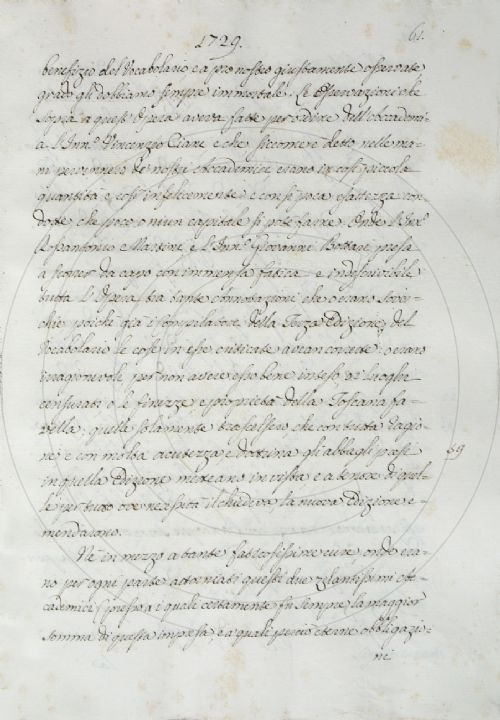 1729.
61.
benefizio del Vocabolario e a pro nostro giustamente osservate
grado gli dobbiamo sempre immortale. Le Osservazioni che
sopra a quest'Opera aveva fatte per ordine dell'Accademi=
a l'Inn.º Vincenzio e che siccome detto nelle ma=
ni pervennero de nostri Accademici erano in così piccola
quantità e così infelicemente e con sì poca esattezza con=
dotte, che poco o niun capitale si potè farne. Onde l'Inn.º
Rosantonio e l'Inn.º Giovanni Bottari presa
a da capo con immensa fatica e indiscrivibile
tutta l'Opera, tra tante Annotazioni che o erano sover=
chie poichè già i Compilatori della Terza Edizione del
Vocabolario le cose in esse criticate avean corrette: o erano
inragionevoli per non avere esso bene inteso, o i luoghi
censurati o le finezze e proprietà della Toscana fa=
vella, quelle solamente trascelsero che con tutta ragio=
ne, e con molta acutezza e dottrina gli abbagli presi
59
in quella Edizione metteano in vista e a tenore di quel=
le per tutto ove necessità il chiedeva la nuova Edizione e=
mendarono.
Nè in mezzo a tante faticosissime cure, onde era=
no per ogni parte attorniati questi due zelantissimi Ac=
cademici (presso a i quali certamente fu sempre la maggior
somma di questa impresa, e a quali perciò eterne obbligazio=
ni